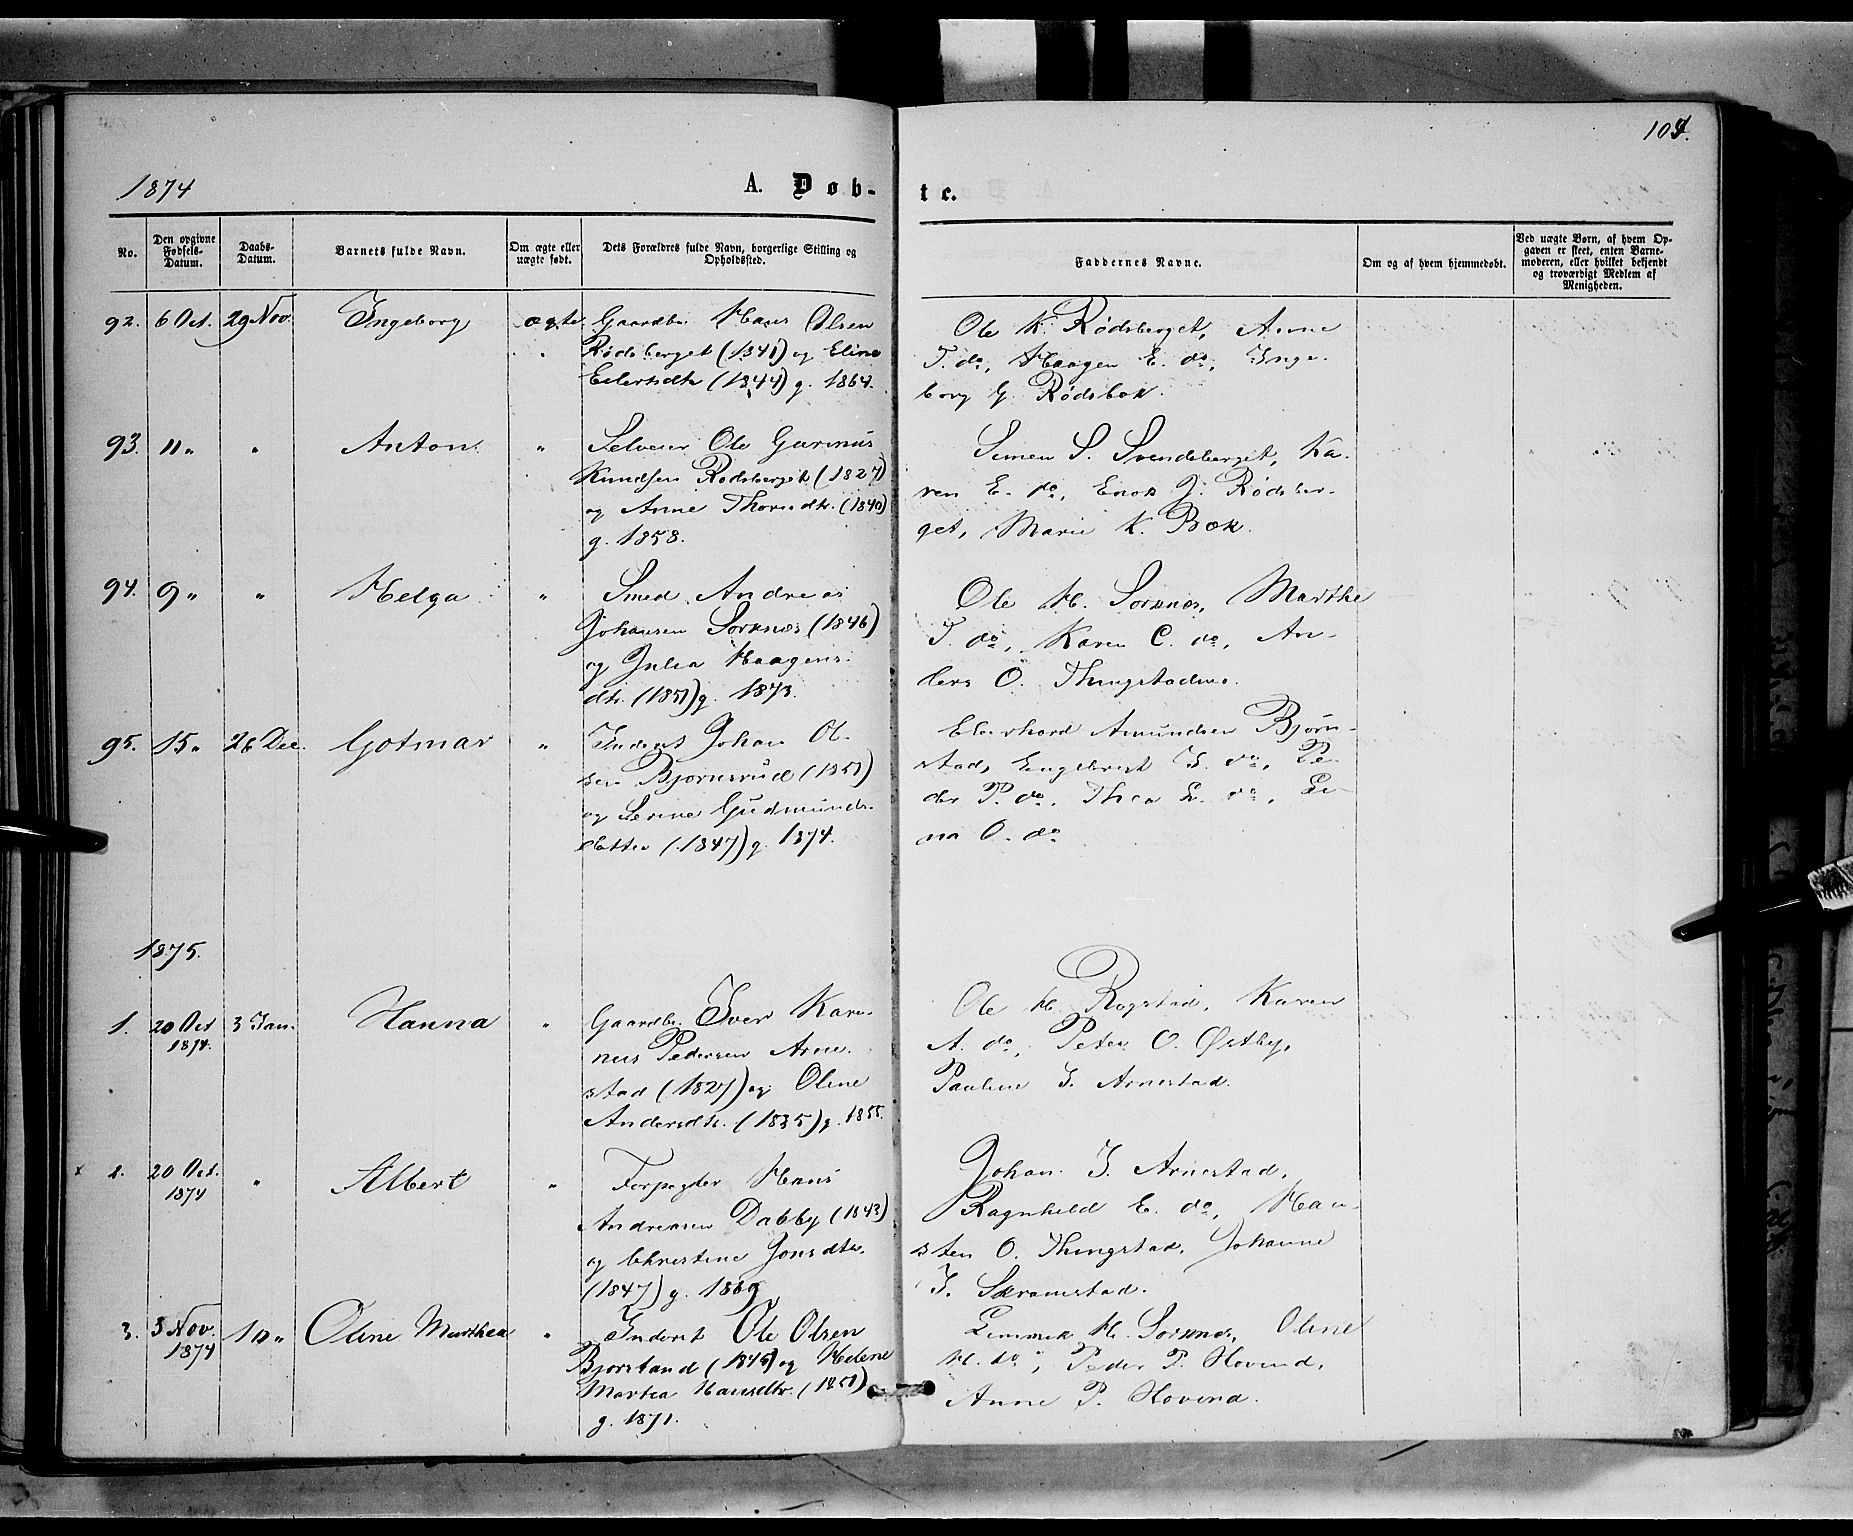 109.
1874
A. Døb-
te.
No.
Den opgivne Fødsels-Datum.
Daabs-Datum.
Barnets fulde Navn.
Om ægte eller uægte født.
Dets Forældres fulde Navn, borgerlige Stilling og Opholdssted.
Faddernes Navne.
Om og af hvem hjemmedøbt.
Ved uægte Børn, af hvem Opgaven er skeet, enten Barnemoderen, eller hvilket bekjendt og troværdigt Medlem af Menigheden.
92. 6 Oct. 29 Nov. Ingeborg ægte. Gaardbr. Hans Olsen
Rødsberget (1841) og Eline
Eilertsdtr (1844) g. 1864.
Ole K. Rødsberget, Anne
T. do, Haagen E. do, Inge-
borg G. Rødsbak.
93. 11 " " Anton. " Selveier Ole Gurinius
Knudsen Rødsberget (1827)
og Anne Thorsdtr. (1840)
g. 1858.
Simen S. Svendsberget, Ka-
ren E. do, Enok J. Rødsber-
get, Marie K. Bæk.
94. 9 " " Helga " Smed Andreas
Johansen Sorknæs (1846)
og Julia Haagens-
dtr. (1851) g. 1873.
Ole H. Sorknæs, Marthe
T. do, Karen C. do, An-
ders O. Thingstadnæs.
95. 15 " 26 Dec. Gotmar " Inderst Johan Ol-
sen Bjørnsrud (1851)
og Serine Gudmunds-
datter (1847) g. 1874.
Eberhard Amundsen Bjørn-
stad, Engebret J. do, Pe-
der P. do, Thea L. do, Li-
na O. do
1875.
1. 20 Oct 1874. 3 Jan. Hanna " Gaardbr. Iver Kari-
nus Pedersen Arne-
stad (1827) og Oline
Andersdtr. (1835) g. 1855.
Ole H. Rogstad, Karen
A. do, Peter O. Østby,
Pauline I. Arnestad.
x 2. 20 Oct. 1874 " Albert " Forpagter Hans
Andreasen Dabby (1843)
og Christine Jonsdtr.
(1847) g. 1869
Johan I. Arnestad,
Ragnhild E. do, Hau-
sten O. Thingstad, Johanne
I. Skramstad.
3. 3 Nov. 1874 10 " Oline Marthea " Inderst Ole Olsen
Bjørstand (1845) og Helene
Martea Hansdtr. (1851)
g. 1871.
H. Sorknæs, Oline
H. do, Peder P. Hovind,
Anne P. Hovind.